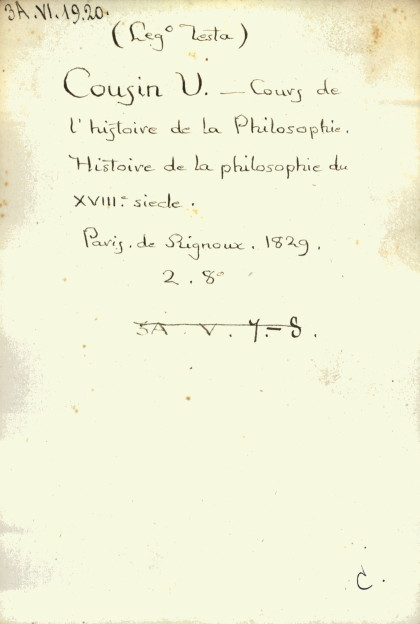 3A.VI.19.20.
(Leg° Testa)
Cousin V. — Cours de
l'histoire de la Philosophie.
Histoire de la philosophie du
XVIII.e siecle.
Paris. de Rignoux. 1829.
2. 8°
3A. V. 7-8.
C.